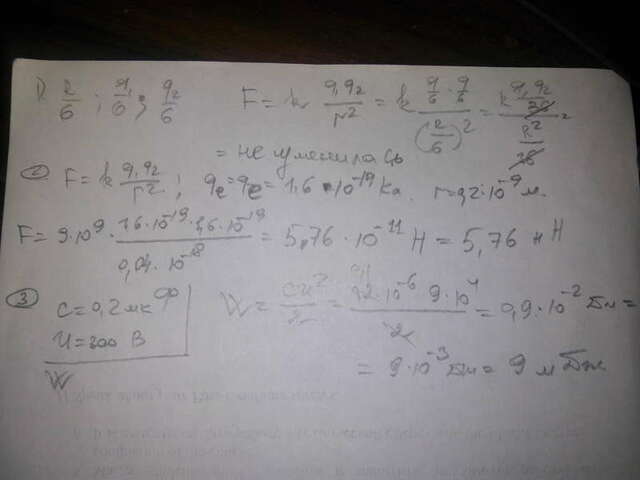 1) R/6 ; q₁/6 ; q₂/6    F = k q₁q₂/r² = k (q/6 · q/6)/(R/6)² = k (q₁q₂/36)/(R²/36) =
= не уменилась
② F = k q₁q₂/r² ; qe = qe = 1,6 · 10⁻¹⁹ Кл. r = 0,2·10⁻⁹ м.
F = 9·10⁹ · (1,6·10⁻¹⁹ · 1,6·10⁻¹⁹)/(0,04·10⁻¹⁸) = 5,76 · 10⁻¹¹ Н = 5,76 н Н
③ C = 0,2 мкФ    W = CU²/2 = (0,2·10⁻⁶ · 9·10⁴)/2 = 0,9·10⁻² Дж =
U = 300 В
W
= 9·10⁻³ Дж = 9 мДж